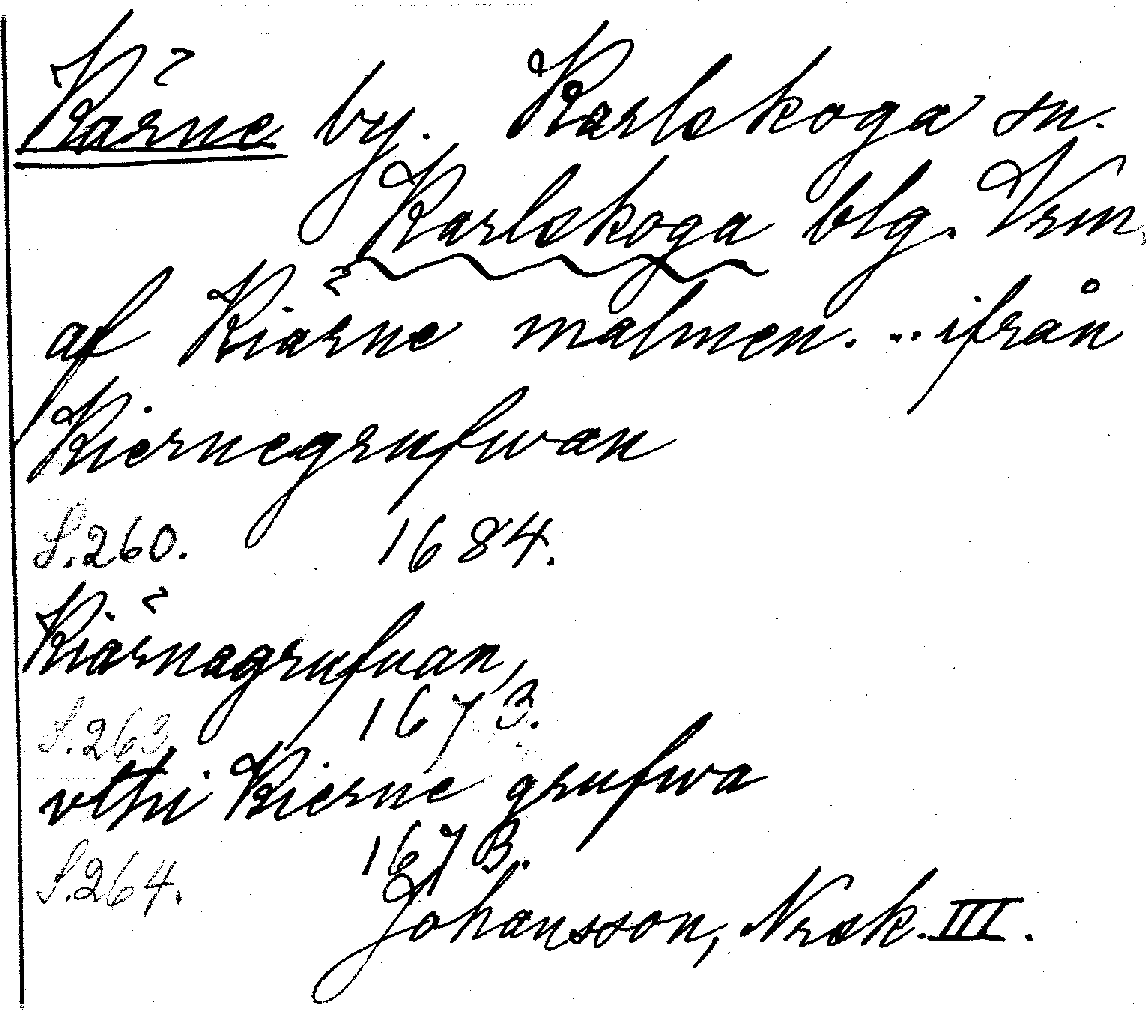 Kärne by. Karlskoga sn.
Karlskoga blg. Vrm.
af Kiärne malmen. .. ifrån
Kiernegrufwan
S.260. 1684.
Kiärnagrufuan,
S.263 1673.
vthi Kierne grufwa
S.264. 1673.
Johansson, Nrsk. III.